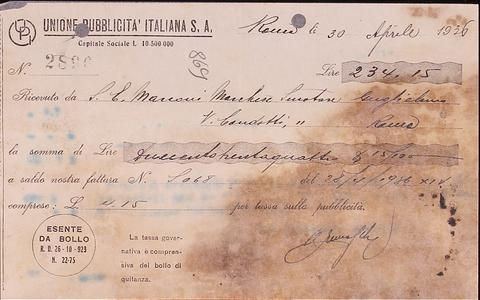 UPI UNIONE PUBBLICITA' ITALIANA S. A. Roma li 30 Aprile 1936
Capitale Sociale L. 10.500.000
N. 869 Lire 234.15
Ricevuto da S. E. Marconi Marchese Senatore Guglielmo
V. Condotti, 11 Roma
la somma di Lire Duecentotrentaquattro & 15/100
a saldo nostra fattura N. del 1936 XIV
comprese: L. 4.15 per tassa sulla pubblicità.
ESENTE
DA BOLLO
R. D. 26-10-923
N. 22-75
La tassa gover-
nativa è compren-
siva del bollo di
quitanza.